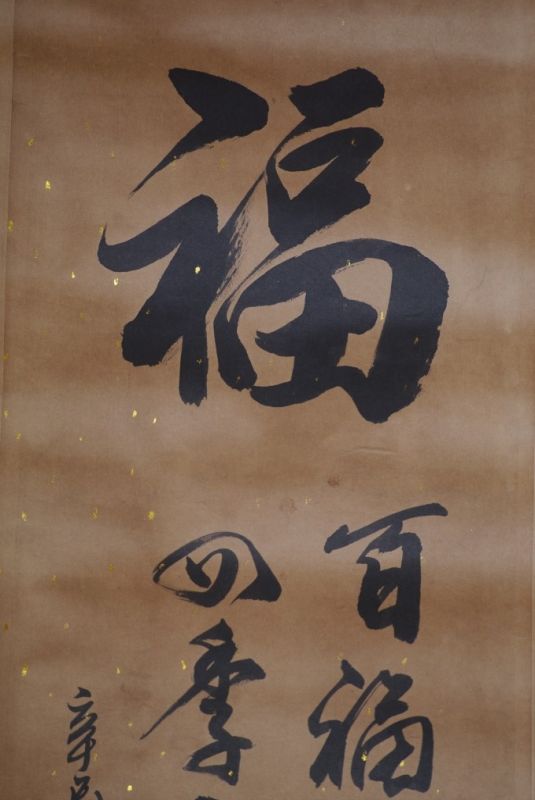 福
百福
四季
辛